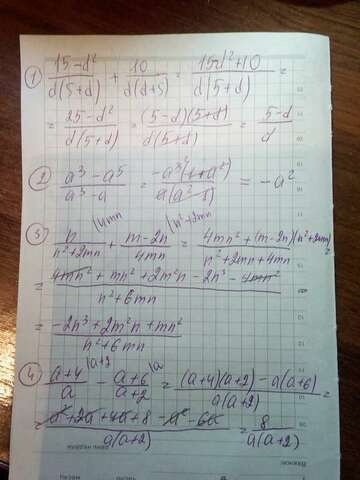 ① (15-d²)/(d(5+d)) + 10/(d(d+5)) = (15d²+10)/(d(5+d)) =
= (25-d²)/(d(5+d)) = ((5-d)(5+d))/(d(5+d)) = (5-d)/d
② (a³-a⁵)/(a³-a) = = -a²
③ n/(n²+2mn) |4mn + (m-2n)/(4mn) |n²+2mn = (4mn²+(m-2n)(n²+2mn))/(n²+2mn+4mn) =
= (4mn²+mn²+2m²n-2n³-4mn²)/(n²+6mn) =
= (-2n³+2m²n+mn²)/(n²+6mn)
④ (a+4)/a |a+2 - (a+6)/(a+2) |a = ((a+4)(a+2)-a(a+6))/(a(a+2)) =
= (a²+2a+4a+8-a²-6a)/(a(a+2)) = 8/(a(a+2))